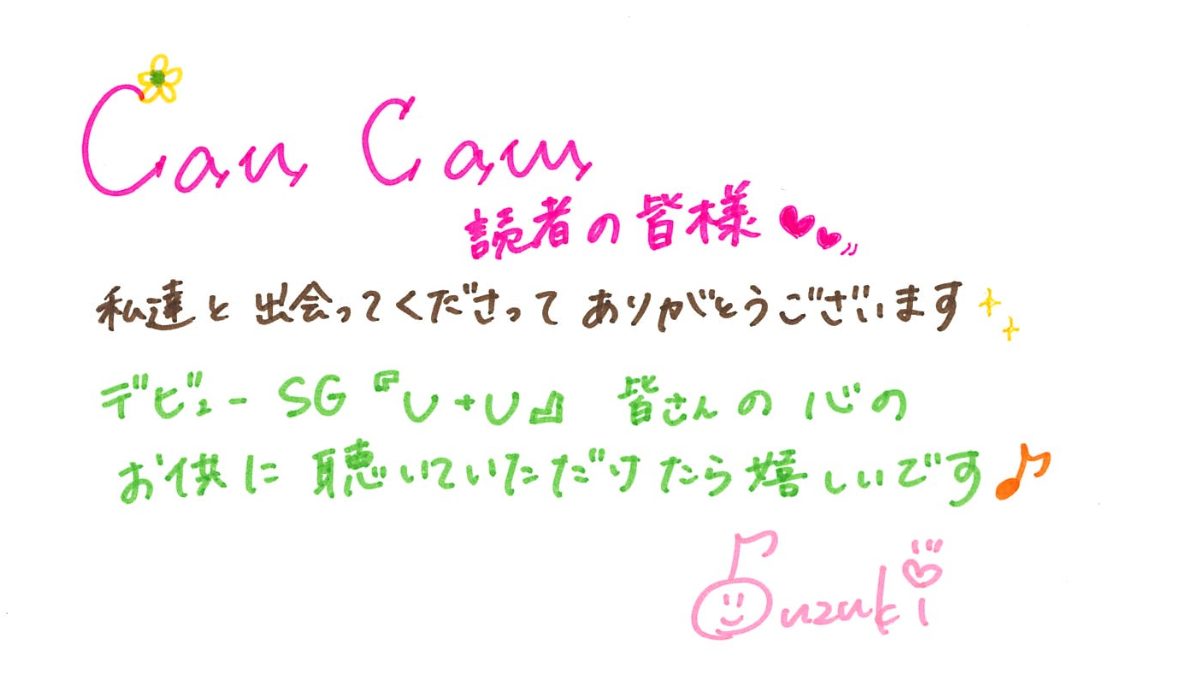 Can Cam
読者の皆様
私達と出会ってくださってありがとうございます
デビューSG『U+U』 皆さんの心の
お供に聴いていただけたら嬉しいです
Suzuki